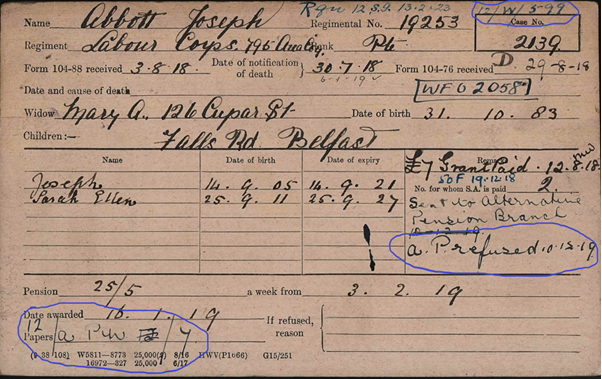 Rgn 12.S.9. 13.2.23 12/W/5799
Name Abbott Joseph Regimental No. 19253 Case No.
Regiment Labour Corps. 795 Area Rank Pte 2139.
Form 104-88 received 3.8.18. Date of notification of death 30.7.18 Form 104-76 received D. 29-8-18
6-1-19
*Date and cause of death WFO 2058
Widow Mary A., 126 Cupar St Date of birth 31. 10. 83
Children:— Falls Rd Belfast
Name Date of birth Date of expiry
£7 Grant Paid. 12.8.18.
50F 19.12.18
No. for whom S.A. is paid 2.
Joseph 14. 9. 05 14. 9. 21
Sarah Ellen 25. 9. 11 25. 9. 27
Sent to Alternative
Pension Branch
10-12-19
A. P. refused 10.12.19
Pension 25/5 a week from 3. 2. 19
Date awarded 16. 1. 19
If refused, reason
12
Papers a. P.W /7
(9 38 108) W5811—8773 25,000(2) 8/16 HWV(P1066) G15/251
16972—327 25,000 6/17